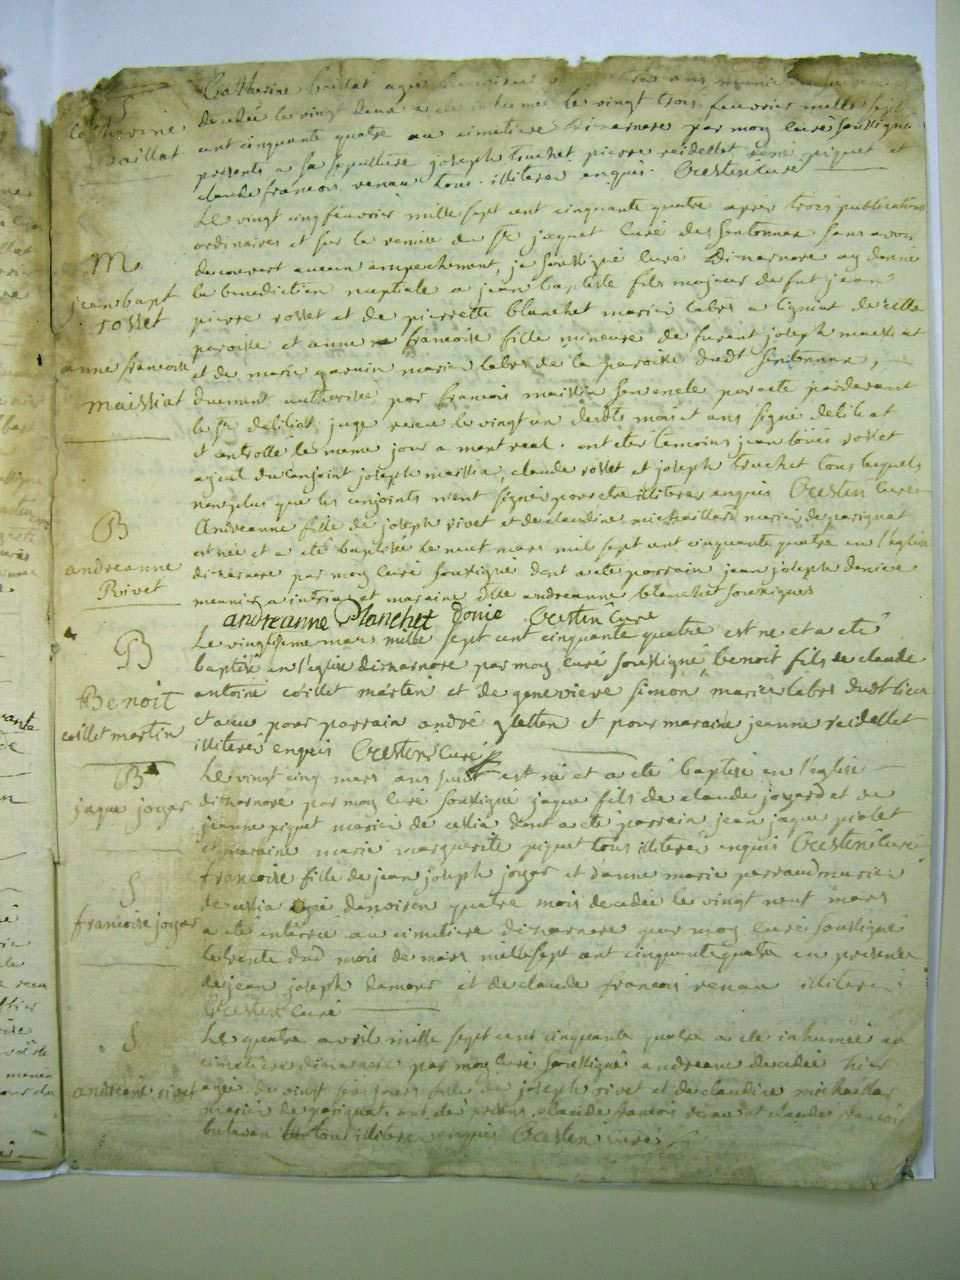 S
Catherine
vaillat
Catherine vaillat agée
decedée le vingt deux a été inhumée le vingt trois feuvrier mille sept
cent cinquante quatre au cimetiere dizarnore par moy curé soussigné
présents a sa sepulture joseph truchet pierre reidellet rené piquet et
claude francois renau tous illiterés enquis Crestin curé
Le vingt cinq feuvrier mille sept cent cinquante quatre apres trois publications
ordinaires et sur la remise du Sr jacquet curé de Sentonnax sans avoir
decouvert aucun empechement, je soussigné curé dizarnore ay donné
la benediction nuptiale a jean baptiste fils majeur de fut jean
pierre rosset et de pierrette blanchet mariés labrs a lignat de cette
paroisse et anne francoise fille mineure de furent joseph maissiat
et de marie garnin mariés labrs de la paroisse dudt Sentonnax,
duement authorisée par francois maissia son oncle par acte pardevant
le Sr deliliat juge receu le vingt un desdts mois et ans signé deliliat
et controllé le meme jour a montreal. ont eter temoins jean louis rosset
ayeul du conjoint joseph maissia, claude rosset et joseph truchet tous lequels
non plus que les conjoints n'ont signés pour etre illiterés enquis Crestin curé
M
jean bapt
rosset
anne francoise
maissiat
B
andreanne
Rivet
Andreanne fille de joseph rivet et de claudine michaillard mariés de parignat
est née et a été baptisée le neuf mars mil sept cent cinquante quatre en l'église
dizarnore par moy curé soussigné dont a été parrain jean joseph donice
meunier a intria et maraine dlle andreanne blanchet soussignés
andreanne Blanchet Donie Crestin curé
B
Benoit
coillet martin
Le vingtiesme mars mille sept cent cinquante quatre est né et a été
baptisé en l'église dizarnore par moy curé soussigné, benoit fils de claude
antoine coillet martin et de genevieve simon mariés labrs dudt lieu
et a eu pour parrain andré gletton et pour maraine jeanne reidellet
illiterés enquis Crestin Curé
B
jaque joyar
Le vingt cinq mars ans susdt est né et a eté baptisé en l'église
dizarnore par moy curé soussigné jaque fils de claude joyard et de
jeanne piquet mariés de cessia dont a eté parrain jean jaque piolet
et maraine marie marguerite piquet tous illiterés enquis Crestin curé
S
francoise joyar
francoise fille de jean joseph joyar et danne marie perraud mariés
de cessia agée denviron quatre mois decedée le vingt neuf mars
a été enterrée au cimetiere dizarnore par moy curé soussigné
le trente dud mois de mars mille sept cent cinquante quatre en presence
de jean joseph damour et de claude francois renau illiterés
Crestin curé
S
andreane rivet
Le quatre avril mille sept cent cinquante quatre a eté inhumée au
cimetiere dizarnore par moy curé soussigné andreane decedée hier
agée de vingt six jours fille de joseph rivet et de claudine michaillar
mariés de parignat ont été présens claude francois renau et claude francois
butavan tous illiterés enquis Crestin curé